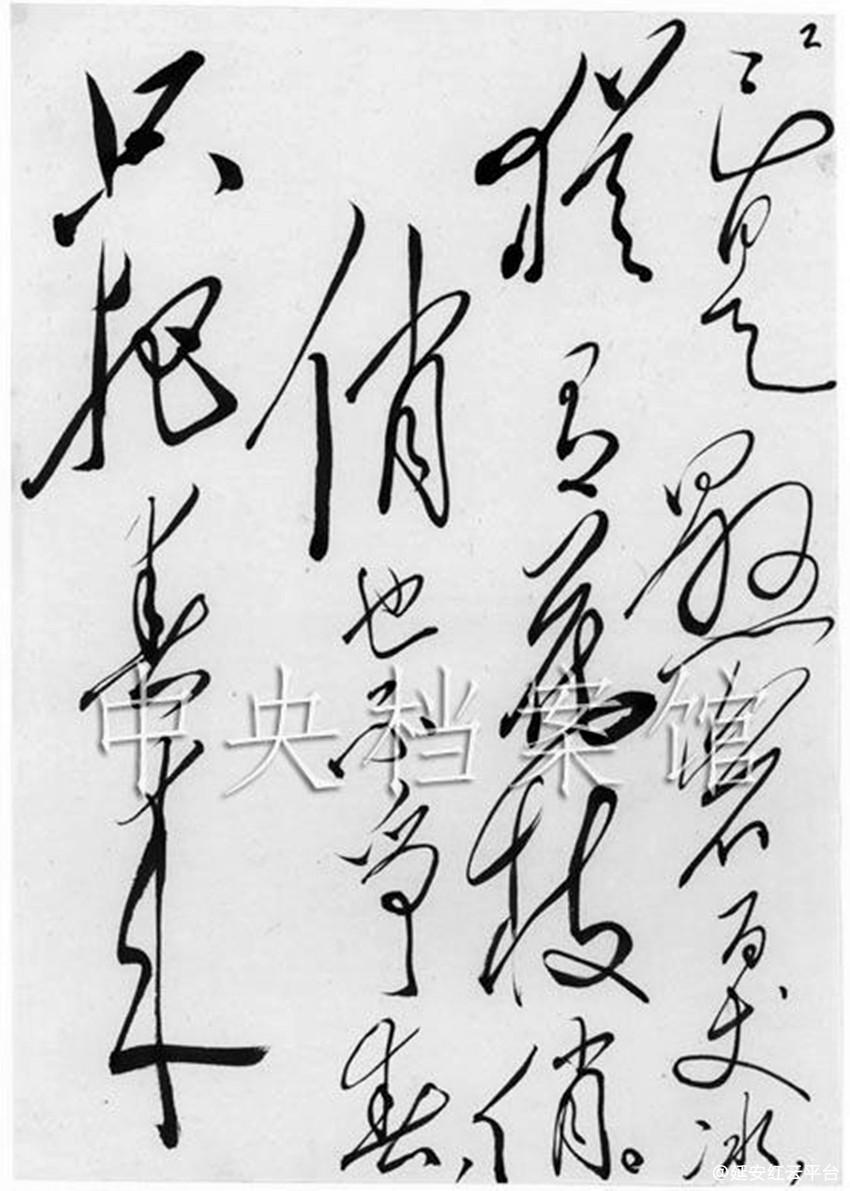 2
已是懸崖百丈冰,
猶有花枝俏。
俏也不爭春,
只把春來
中央档案馆
@延安红云平台